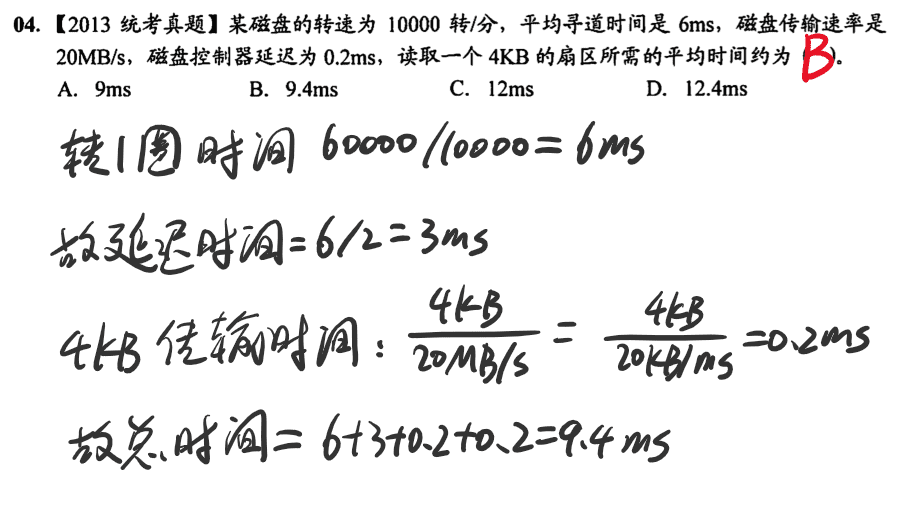 04. 【2013 统考真题】某磁盘的转速为 10000 转/分，平均寻道时间是 6ms，磁盘传输速率是
20MB/s，磁盘控制器延迟为 0.2ms，读取一个 4KB 的扇区所需的平均时间约为（B）。
A. 9ms B. 9.4ms C. 12ms D. 12.4ms
转1圈时间 60000/10000=6ms
故延迟时间=6/2=3ms
4KB 传输时间: 4KB/20MB/s = 4KB/20KB/ms =0.2ms
故总时间= 6+3+0.2+0.2=9.4ms